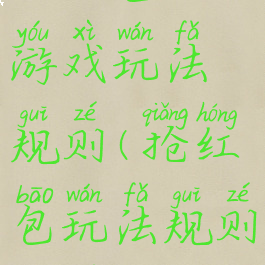 yóu xì wán fǎ
游戏玩法
guī zé qiǎng hóng
规则(抢红
bāo wán fǎ guī zé
包玩法规则